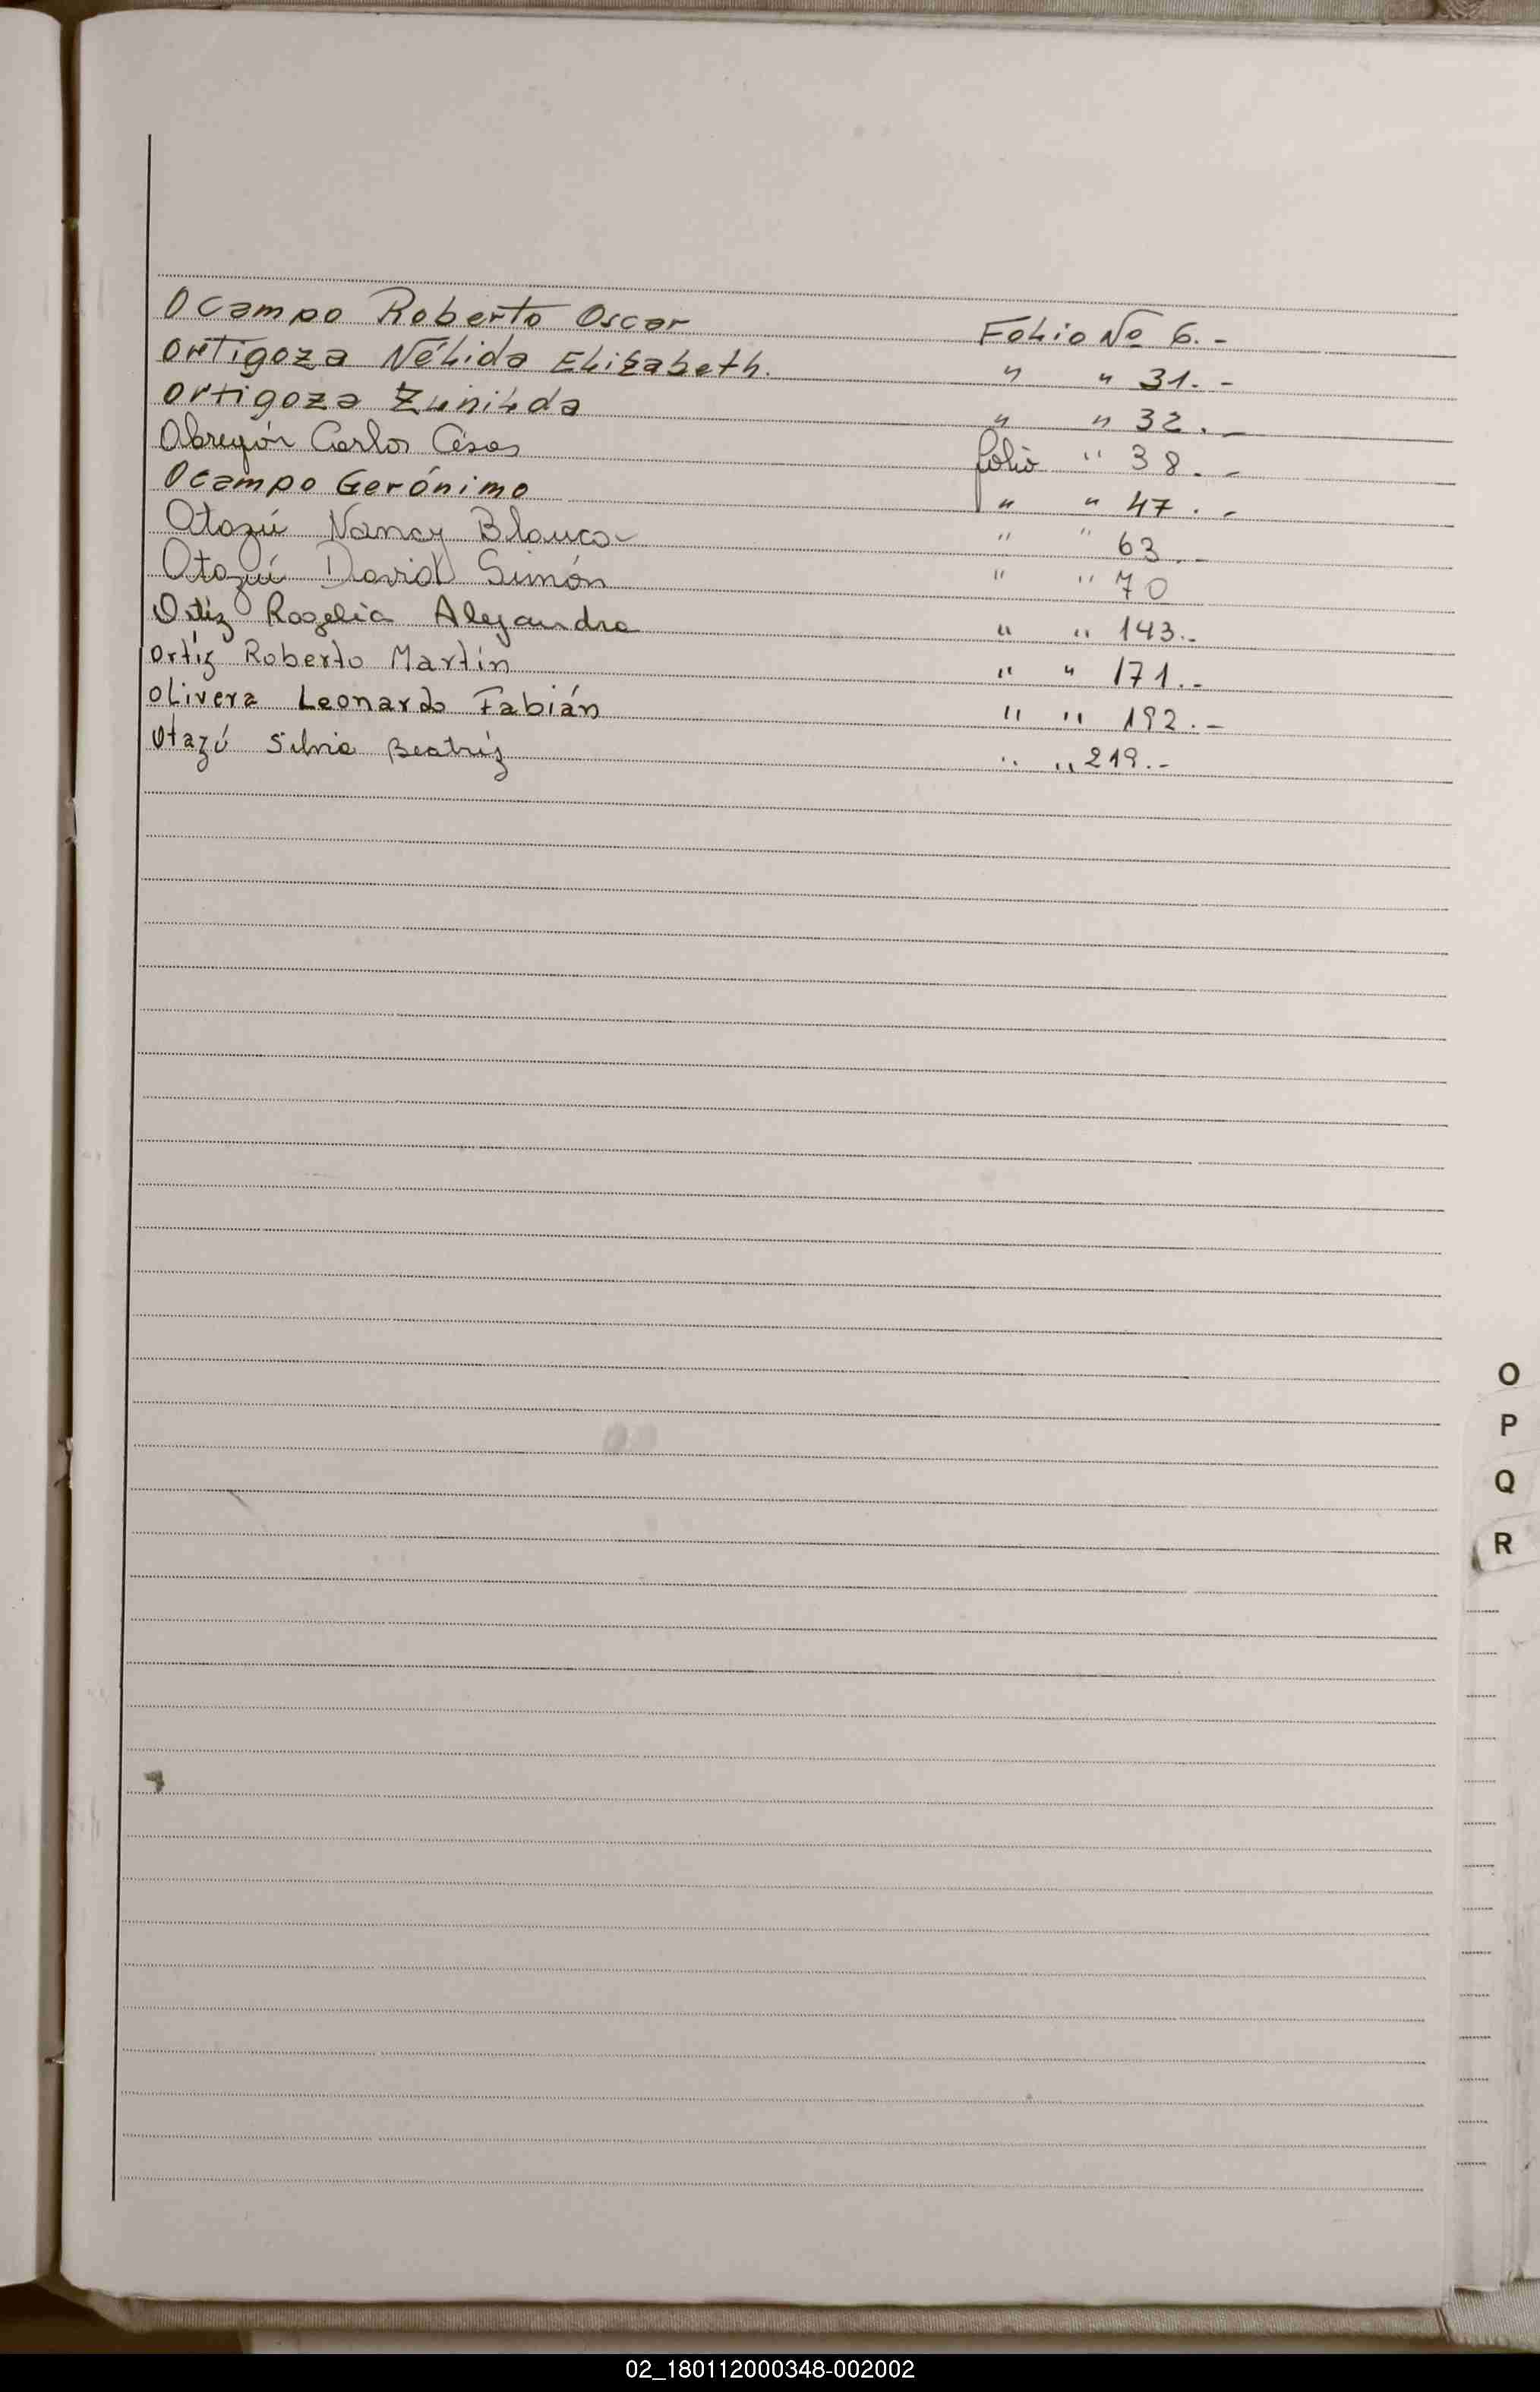 Ocampo Roberto Oscar Folio Nº 6.-
Ortigoza Nélida Elizabeth. " " 31.-
Ortigoza Zunilda " " 32.-
Obregón Carlos César folio " 38.-
Ocampo Gerónimo " " 47.-
Otazú Nancy Blanca " " 63.-
Otazú David Simón " " 70
Ortíz Rogelia Alejandra " " 143.-
Ortíz Roberto Martín " " 171.-
Olivera Leonardo Fabián " " 192.-
Otazú Silvia Beatríz " " 219.-
O
P
Q
R
02_180112000348-002002